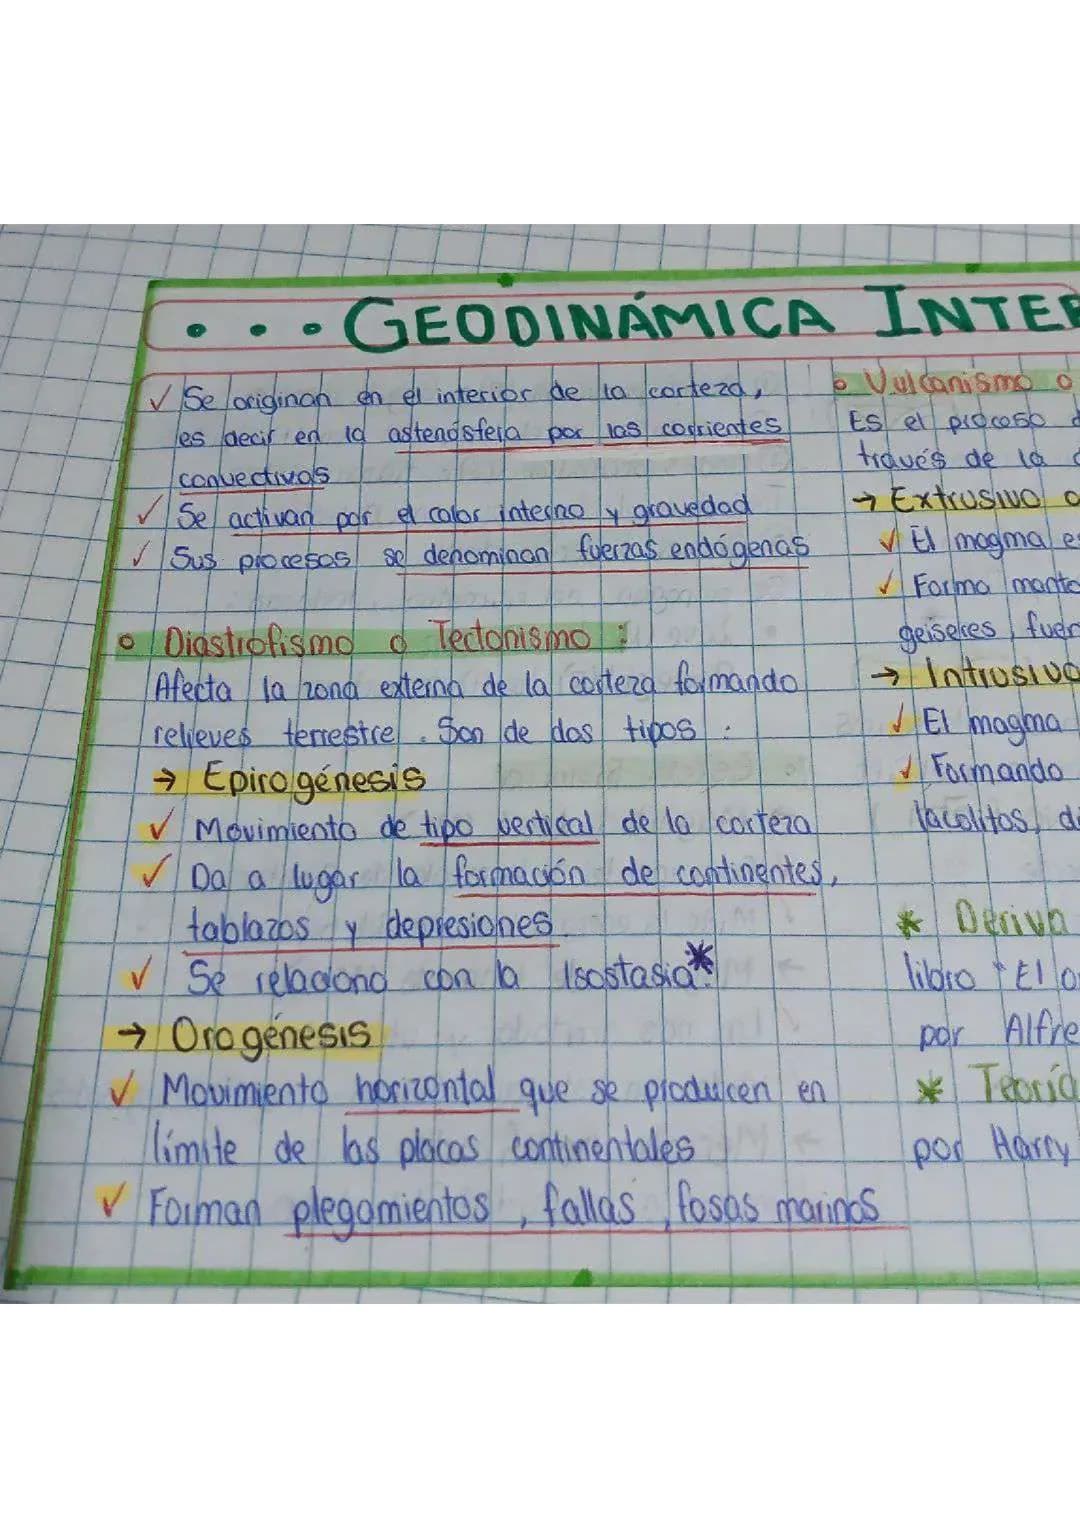 GEODINÁMICA INTER
✓ Se originan en el interior de la corteza,
es decir en la astenósfera por las corrientes
convectivas
✓ Se activan por el calor interno y gravedad
✓ Sus procesos se denominan fuerzas endógenas
Diastrofismo o Tectonismo :
Afecta la zona externa de la corteza formando
relieves terrestre. Son de dos tipos :
→ Epirogénesis
✓ Movimiento de tipo vertical de la corteza
✓ Da a lugar la formación de continentes,
tablazos y depresiones
✓ Se relaciona con la Isostasia*
→ Orogénesis
✓ Movimiento horizontal que se producen en
límite de las placas continentales
✓ Forman plegamientos, fallas, fosas marinas
Vulcanismo o
Es el proceso d
través de la
→ Extrusivo o
✓ El magma es
✓ Forma manto
geiseres, fuen
→ Intrusivo
✓ El magma
✓ Formando
lacolitos, di
* Deriva
libro "El o
por Alfre
* Teoría
por Harry